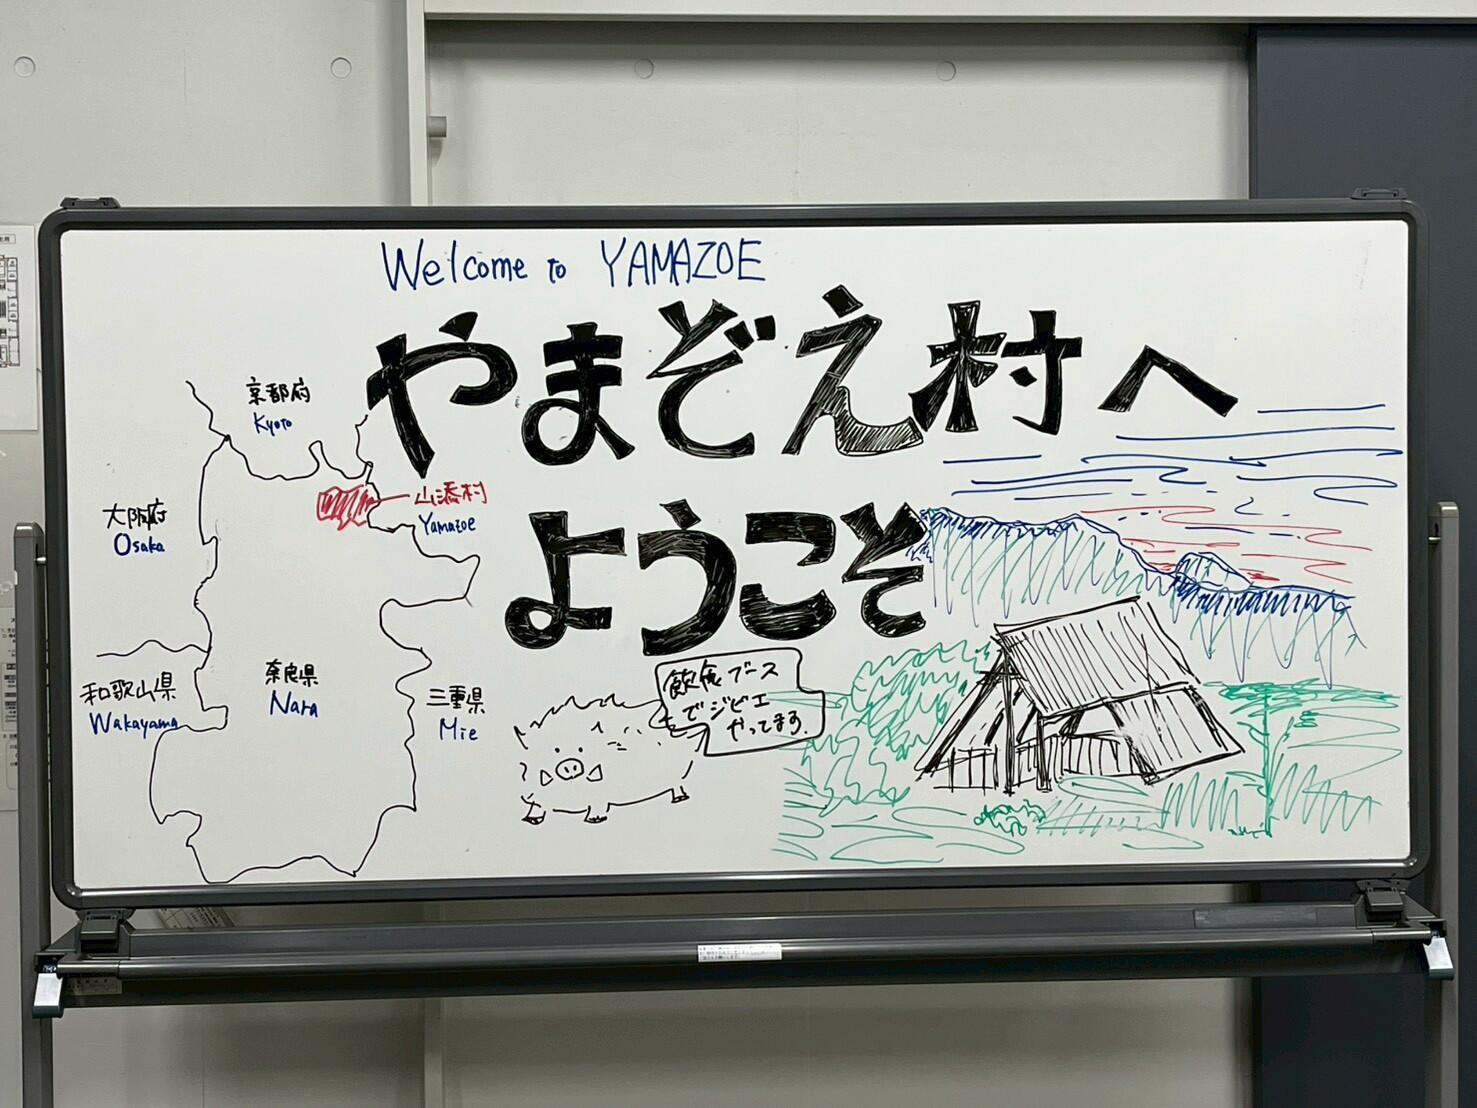 Welcome to YAMAZOE
やまぞえ村へ
ようこそ
京都府
Kyoto
大阪府
Osaka
山添村
Yamazoe
和歌山県
Wakayama
奈良県
Nara
三重県
Mie
飲食ブース
でジビエ
やってます.